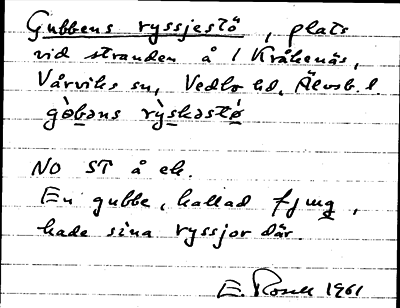 Gubbens ryssjestö, plats
vid stranden å 1 Kråkenäs,
Vårviks sn, Vedbo hd, Älvsb. l.
gòbəns rỳskəstǿ
NO ST å ek.
En gubbe, kallad fjung,
hade sina ryssjor där.
E. Rosell 1961